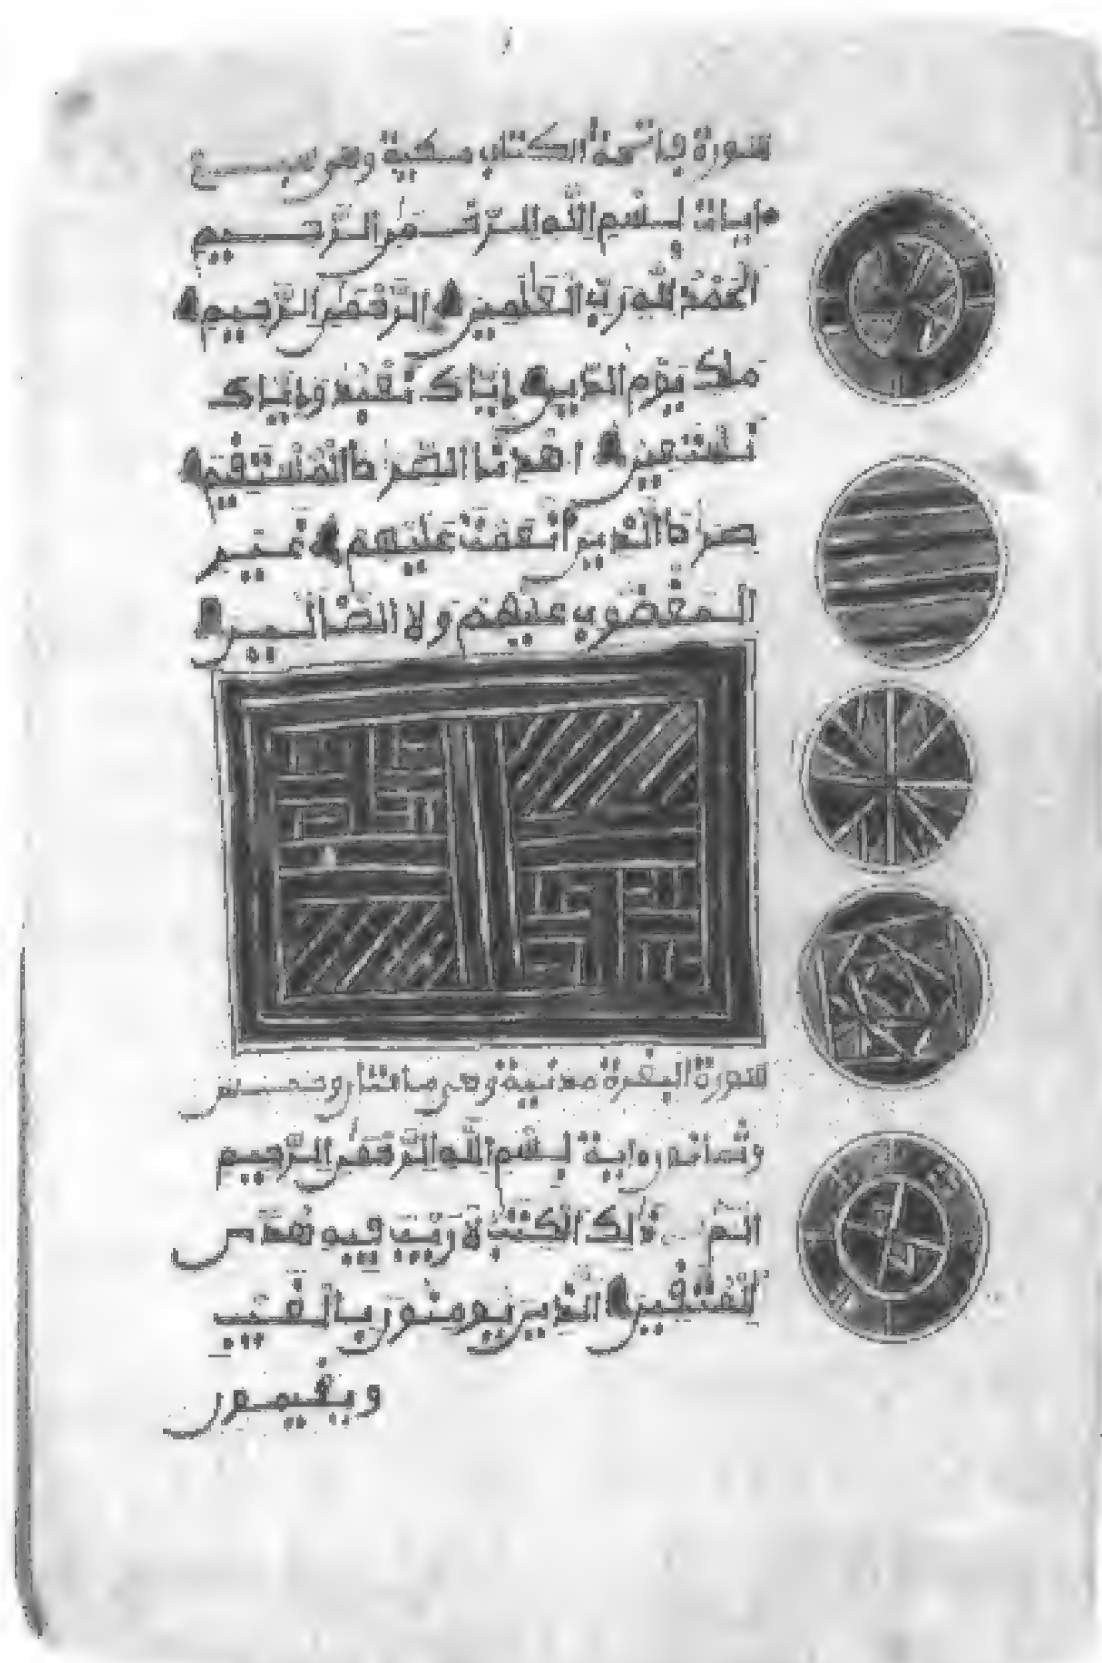 سورة فاتحة الكتاب مكية وهي سبع
ايات بسم الله الرحمن الرحيم
الحمد لله رب العلمين الرحمن الرحيم
ملك يوم الدين إياك نعبد وإياك
نستعين اهدنا الصراط المستقيم
صراط الذين أنعمت عليهم غير
المغضوب عليهم ولا الضالين
سورة البقرة مدنية وهي مائتان وخمس
وثمانون اية بسم الله الرحمن الرحيم
الم ذلك الكتب لا ريب فيه هدى
للمتقين الذين يومنون بالغيب
ويقيمون